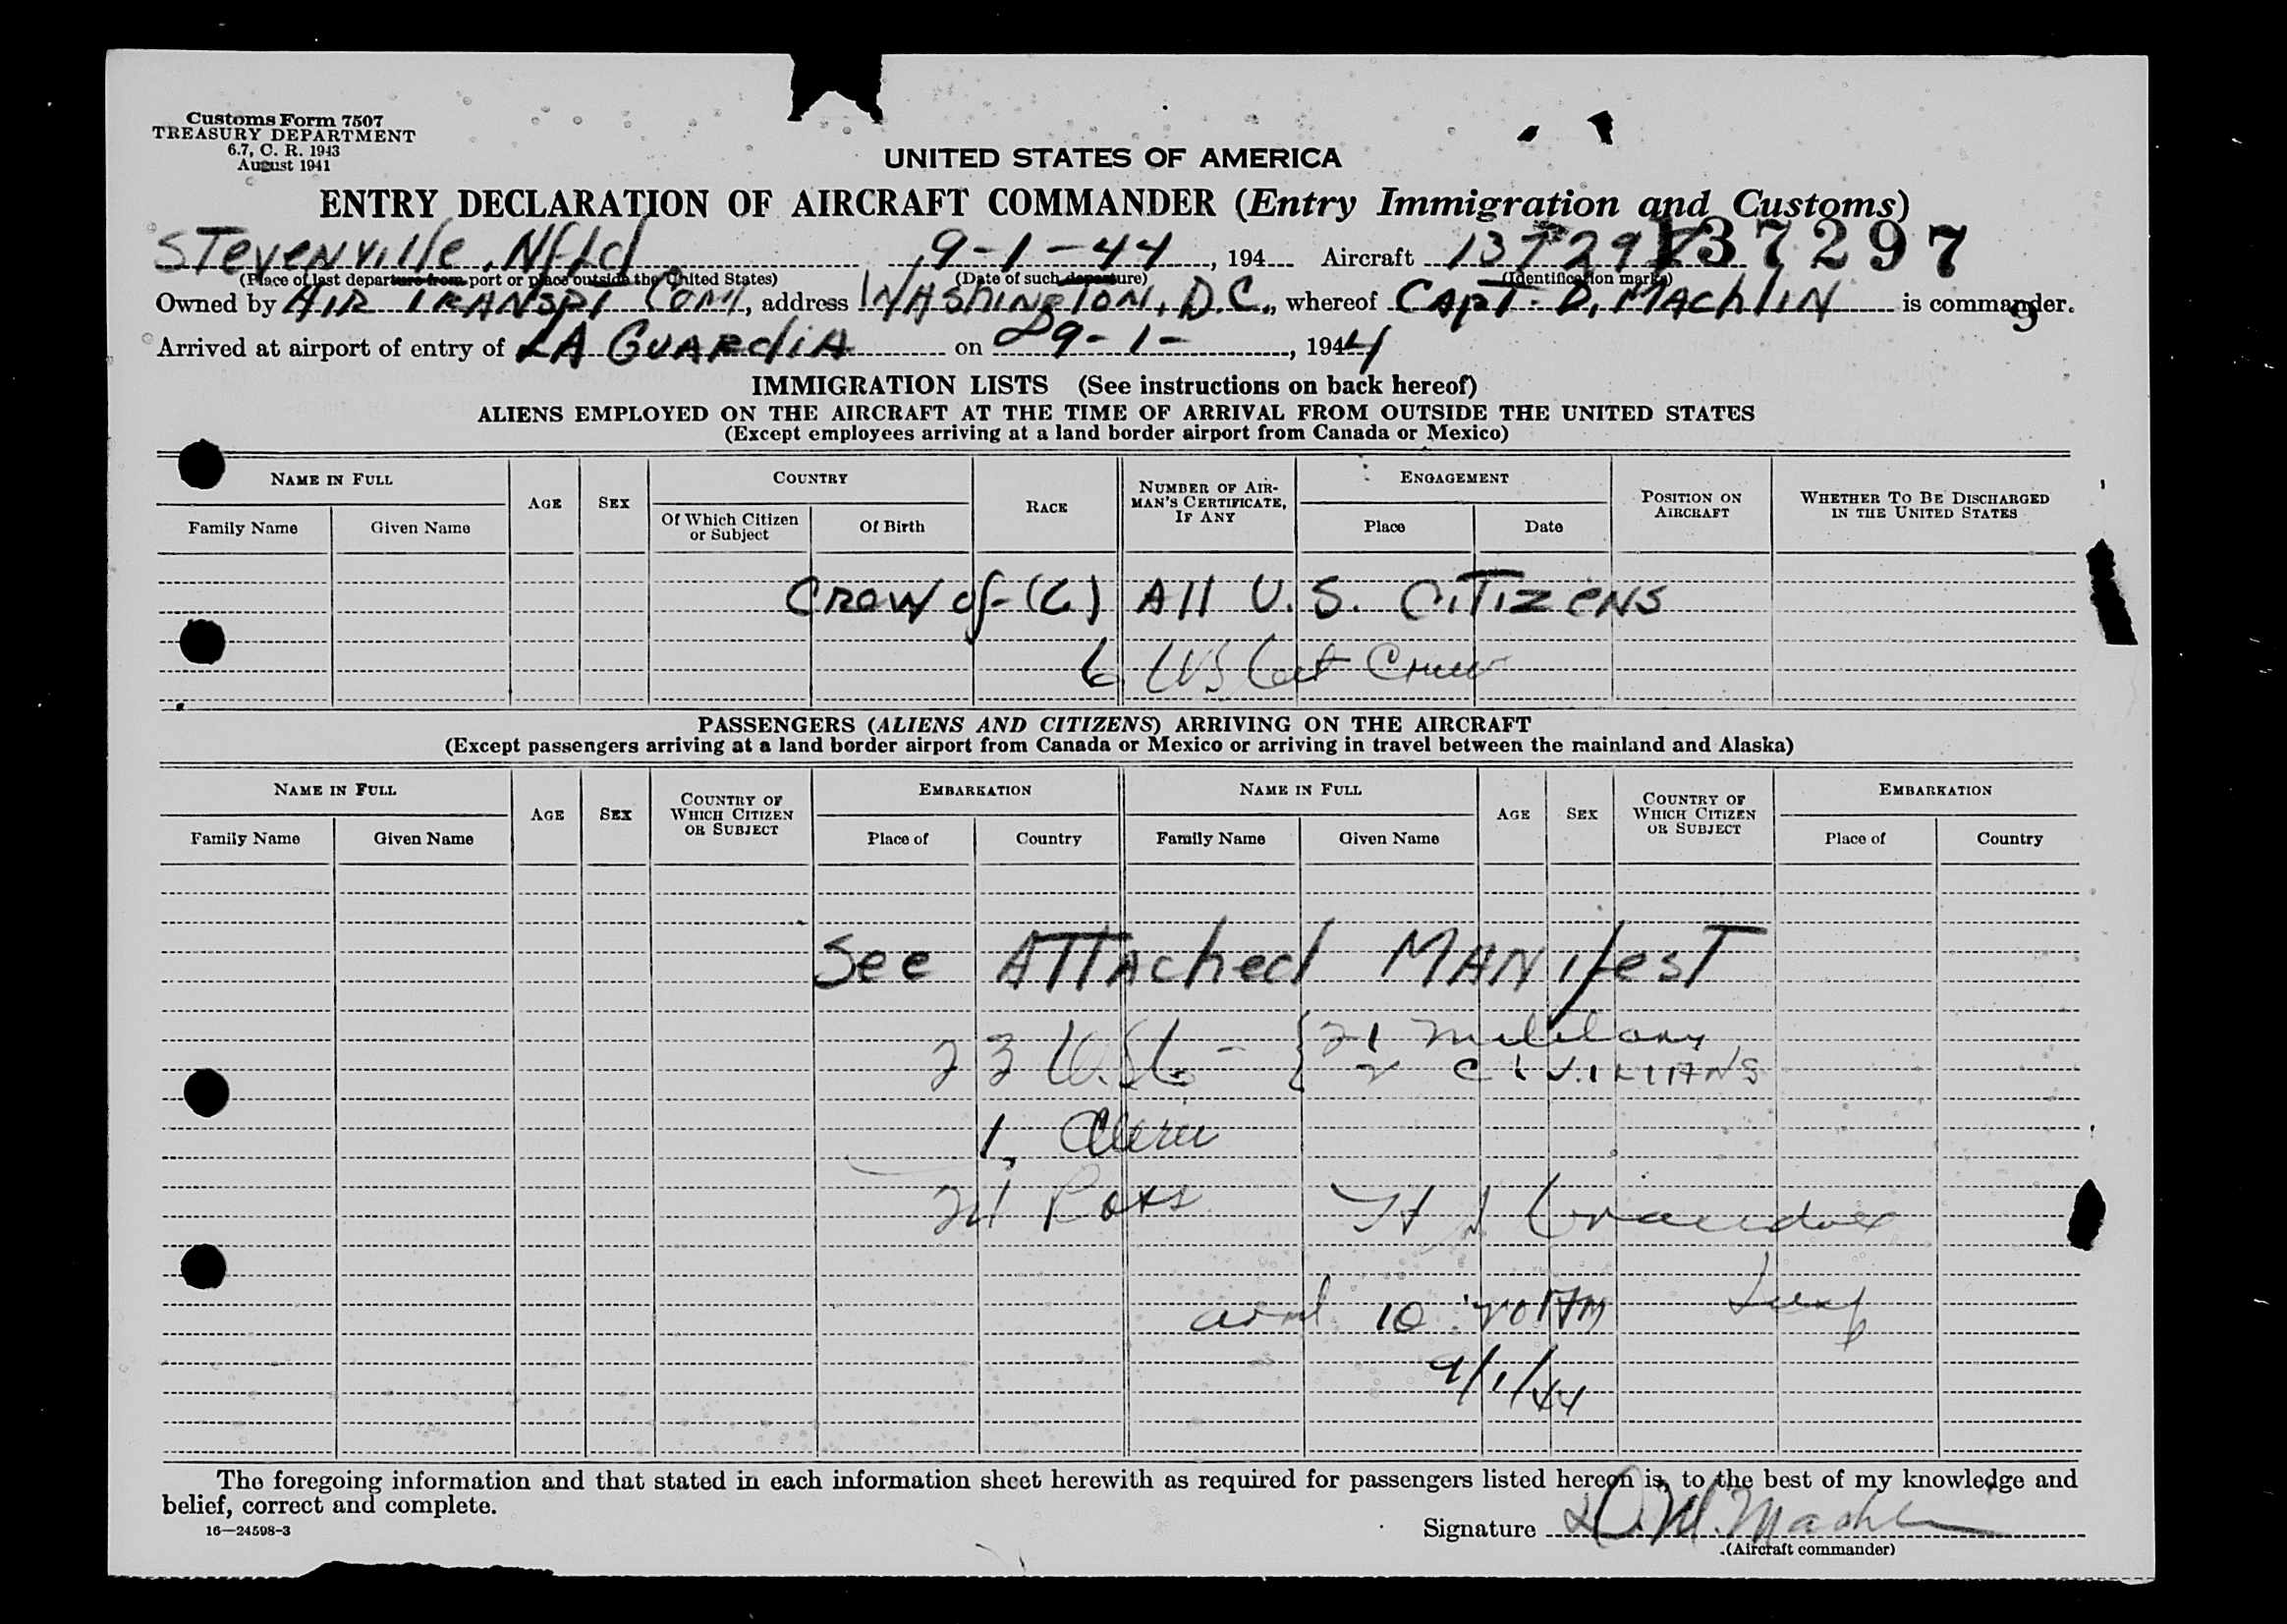 Customs Form 7507
TREASURY DEPARTMENT
6.7, C. R. 1943
August 1941
UNITED STATES OF AMERICA
ENTRY DECLARATION OF AIRCRAFT COMMANDER (Entry Immigration and Customs)
STevenville, Nfld 9-1-44, 194 Aircraft 137297 137297
(Place of last departure from port or place outside the United States) (Date of such departure) (Identification marks)
Owned by AIR TRANSPT COM, address WAShingTON, D.C., whereof CApT. D. MAchlIN is commander.
9
Arrived at airport of entry of LA GUARdiA on 9-1-, 1944
IMMIGRATION LISTS (See instructions on back hereof)
ALIENS EMPLOYED ON THE AIRCRAFT AT THE TIME OF ARRIVAL FROM OUTSIDE THE UNITED STATES
(Except employees arriving at a land border airport from Canada or Mexico)
NAME IN FULL AGE SEX COUNTRY RACE NUMBER OF AIRMAN'S CERTIFICATE, IF ANY ENGAGEMENT POSITION ON AIRCRAFT WHETHER TO BE DISCHARGED IN THE UNITED STATES
Family Name Given Name Of Which Citizen or Subject Of Birth Place Date
CREW of (6) All U.S. CiTizENS
6 US Cit Crew
PASSENGERS (ALIENS AND CITIZENS) ARRIVING ON THE AIRCRAFT
(Except passengers arriving at a land border airport from Canada or Mexico or arriving in travel between the mainland and Alaska)
NAME IN FULL AGE SEX COUNTRY OF WHICH CITIZEN OR SUBJECT EMBARKATION NAME IN FULL AGE SEX COUNTRY OF WHICH CITIZEN OR SUBJECT EMBARKATION
Family Name Given Name Place of Country Family Name Given Name Place of Country
See ATTAched MANifesT
23 U.S.C. - { 21 military
2 CIVILIANS
1, Alien
24 Pass
arvd 10:20 AM Insp
9/1/44
The foregoing information and that stated in each information sheet herewith as required for passengers listed hereon is, to the best of my knowledge and
belief, correct and complete.
16—24598-3
Signature D. M. Machlin
(Aircraft commander)